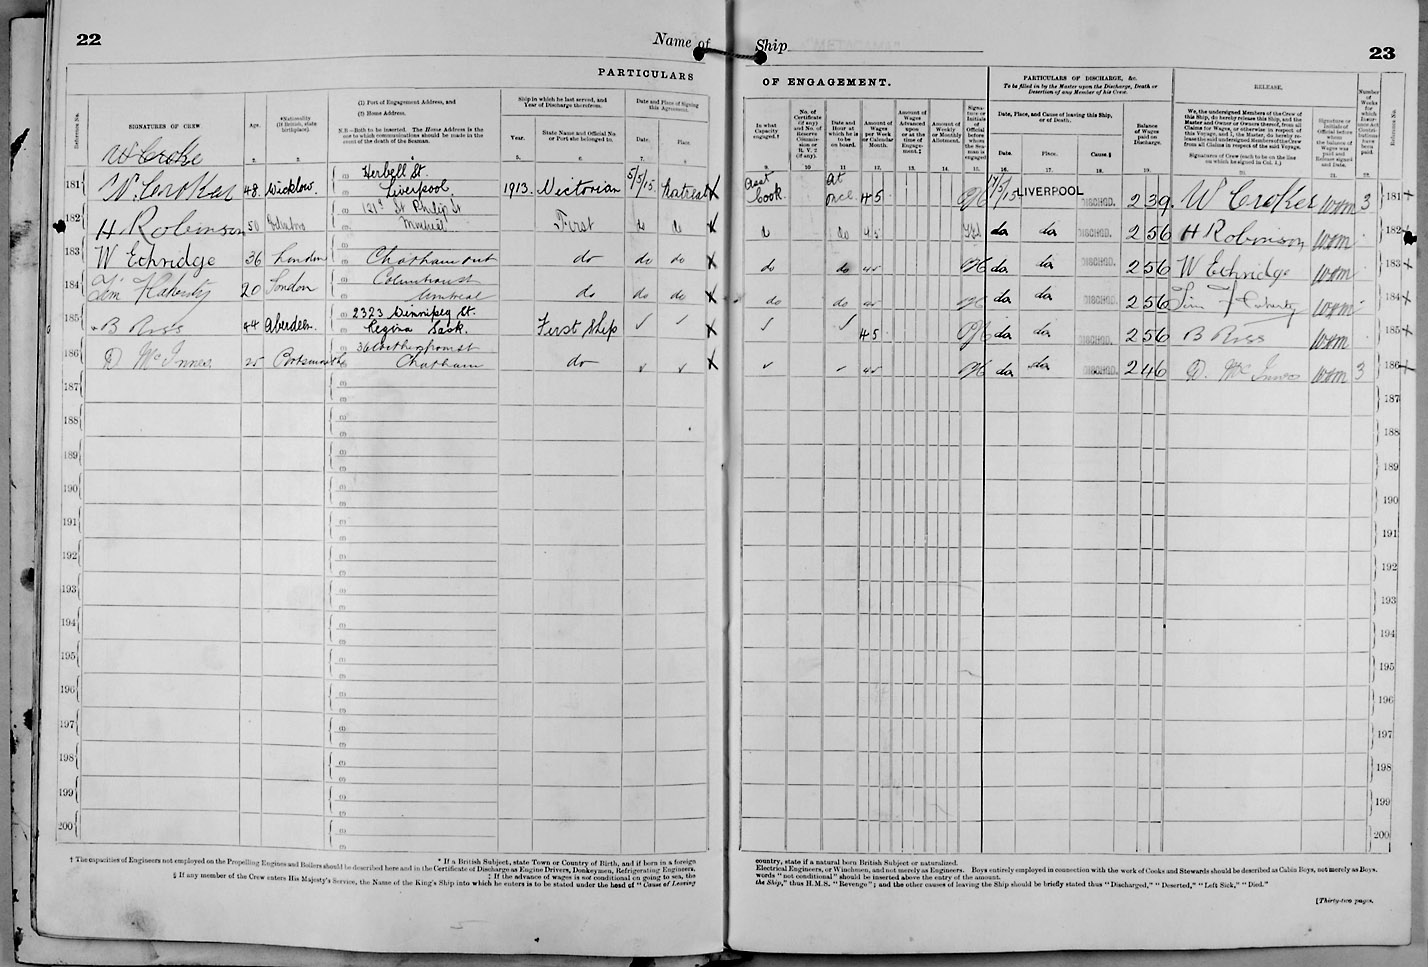 22
Name of Ship
23
PARTICULARS OF ENGAGEMENT.
PARTICULARS OF DISCHARGE, &c.
To be filled in by the Master upon the Discharge, Death or Desertion of any Member of his Crew.
RELEASE.
Reference No.
SIGNATURES OF CREW.
Age.
*Nationality (If British, state birthplace).
(1) Port of Engagement Address, and
(2) Home Address.
N.B.—Both to be inserted. The Home Address is the one to which communications should be made in the event of the death of the Seaman.
Ship in which he last served, and Year of Discharge therefrom.
Year.
State Name and Official No. or Port she belonged to.
Date and Place of Signing this Agreement.
Date.
Place
In what Capacity engaged.†
No. of Certificate (if any) and No. of Reserve Commission or R. V. 2 (if any).
Date and Hour at which he is to be on board.
Amount of Wages per Week or Calendar Month.
Amount of Wages Advanced upon or at the time of Engagement.‡
Amount of Weekly or Monthly Allotment.
Signature or Initials of Official before whom the Seaman is engaged
Date, Place, and Cause of leaving this Ship, or of Death.
Date.
Place.
Cause.§
Balance of Wages paid on Discharge.
We, the undersigned Members of the Crew of this Ship, do hereby release this Ship, and the Master and Owner or Owners thereof, from all Claims for Wages, or otherwise in respect of this Voyage, and I, the Master, do hereby release the said undersigned Members of the Crew from all Claims in respect of the said Voyage.
Signatures of Crew (each to be on the line on which he signed in Col. 1.)
Signature or Initials of Official before whom the balance of Wages was paid and Release signed and Date.
Reference No.
W Croke
181 W. Croker 48 Wicklow Herbell St. Liverpool 1913 Victorian 5/5/15 Asst Cook At once 45 17/5/15 LIVERPOOL DISCHGD. 2 39 W Croker wom 3 181
182 H Robinson 50 St Philip St First do do 45 do do DISCHGD. 2 56 H Robinson wom 182
183 W Ethridge 36 London Chatham Ont do do do do do 45 do do DISCHGD. 2 56 W Ethridge wom 183
184 Tim Flaherty 20 London Montreal do do do do do 45 do do DISCHGD. 2 56 Tim Flaherty wom 184
185 B Ross 44 Aberdeen. 2323 Winnipeg St. Regina Sask. First Ship 45 do do DISCHGD. 2 56 B Ross wom 185
186 D McInnes 25 Portsmouth Chatham do 45 do do DISCHGD. 2 46 D. McInnes wom 3 186
187 187
188 188
189 189
190 190
191 191
192 192
193 193
194 194
195 195
196 196
197 197
198 198
199 199
200 200
† The capacities of Engineers not employed on the Propelling Engines and Boilers should be described here and in the Certificate of Discharge as Engine Drivers, Donkeymen, Refrigerating Engineers,
* If a British Subject, state Town or Country of Birth, and if born in a foreign
‡ If the advance of wages is not conditional on going to sea, the
§ If any member of the Crew enters His Majesty's Service, the Name of the King's Ship into which he enters is to be stated under the head of "Cause of Leaving
country, state if a natural born British Subject or naturalized.
Electrical Engineers, or Winchmen, and not merely as Engineers. Boys entirely employed in connection with the work of Cooks and Stewards should be described as Cabin Boys, not merely as Boys.
words "not conditional" should be inserted above the entry of the amount.
the Ship," thus H.M.S. "Revenge"; and the other causes of leaving the Ship should be briefly stated thus "Discharged," "Deserted," "Left Sick," "Died."
[Thirty-two pages.